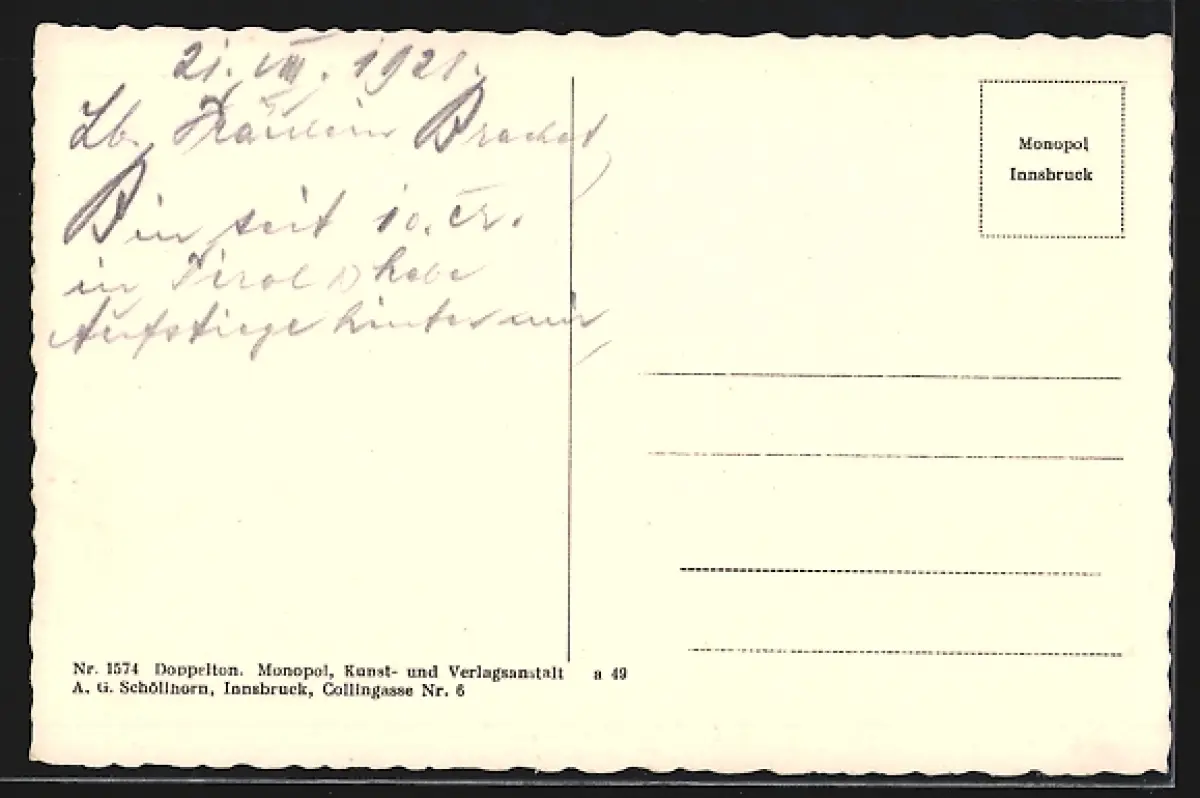 21. VIII. 1928.
Lb. Fräulein Brachet,
Bin seit 10. cr.
in Tirol habe
Aufstiege hinter mir,
Monopol
Innsbruck
Nr. 1574 Doppelton. Monopol, Kunst- und Verlagsanstalt a 49
A. G. Schöllhorn, Innsbruck, Collingasse Nr. 6